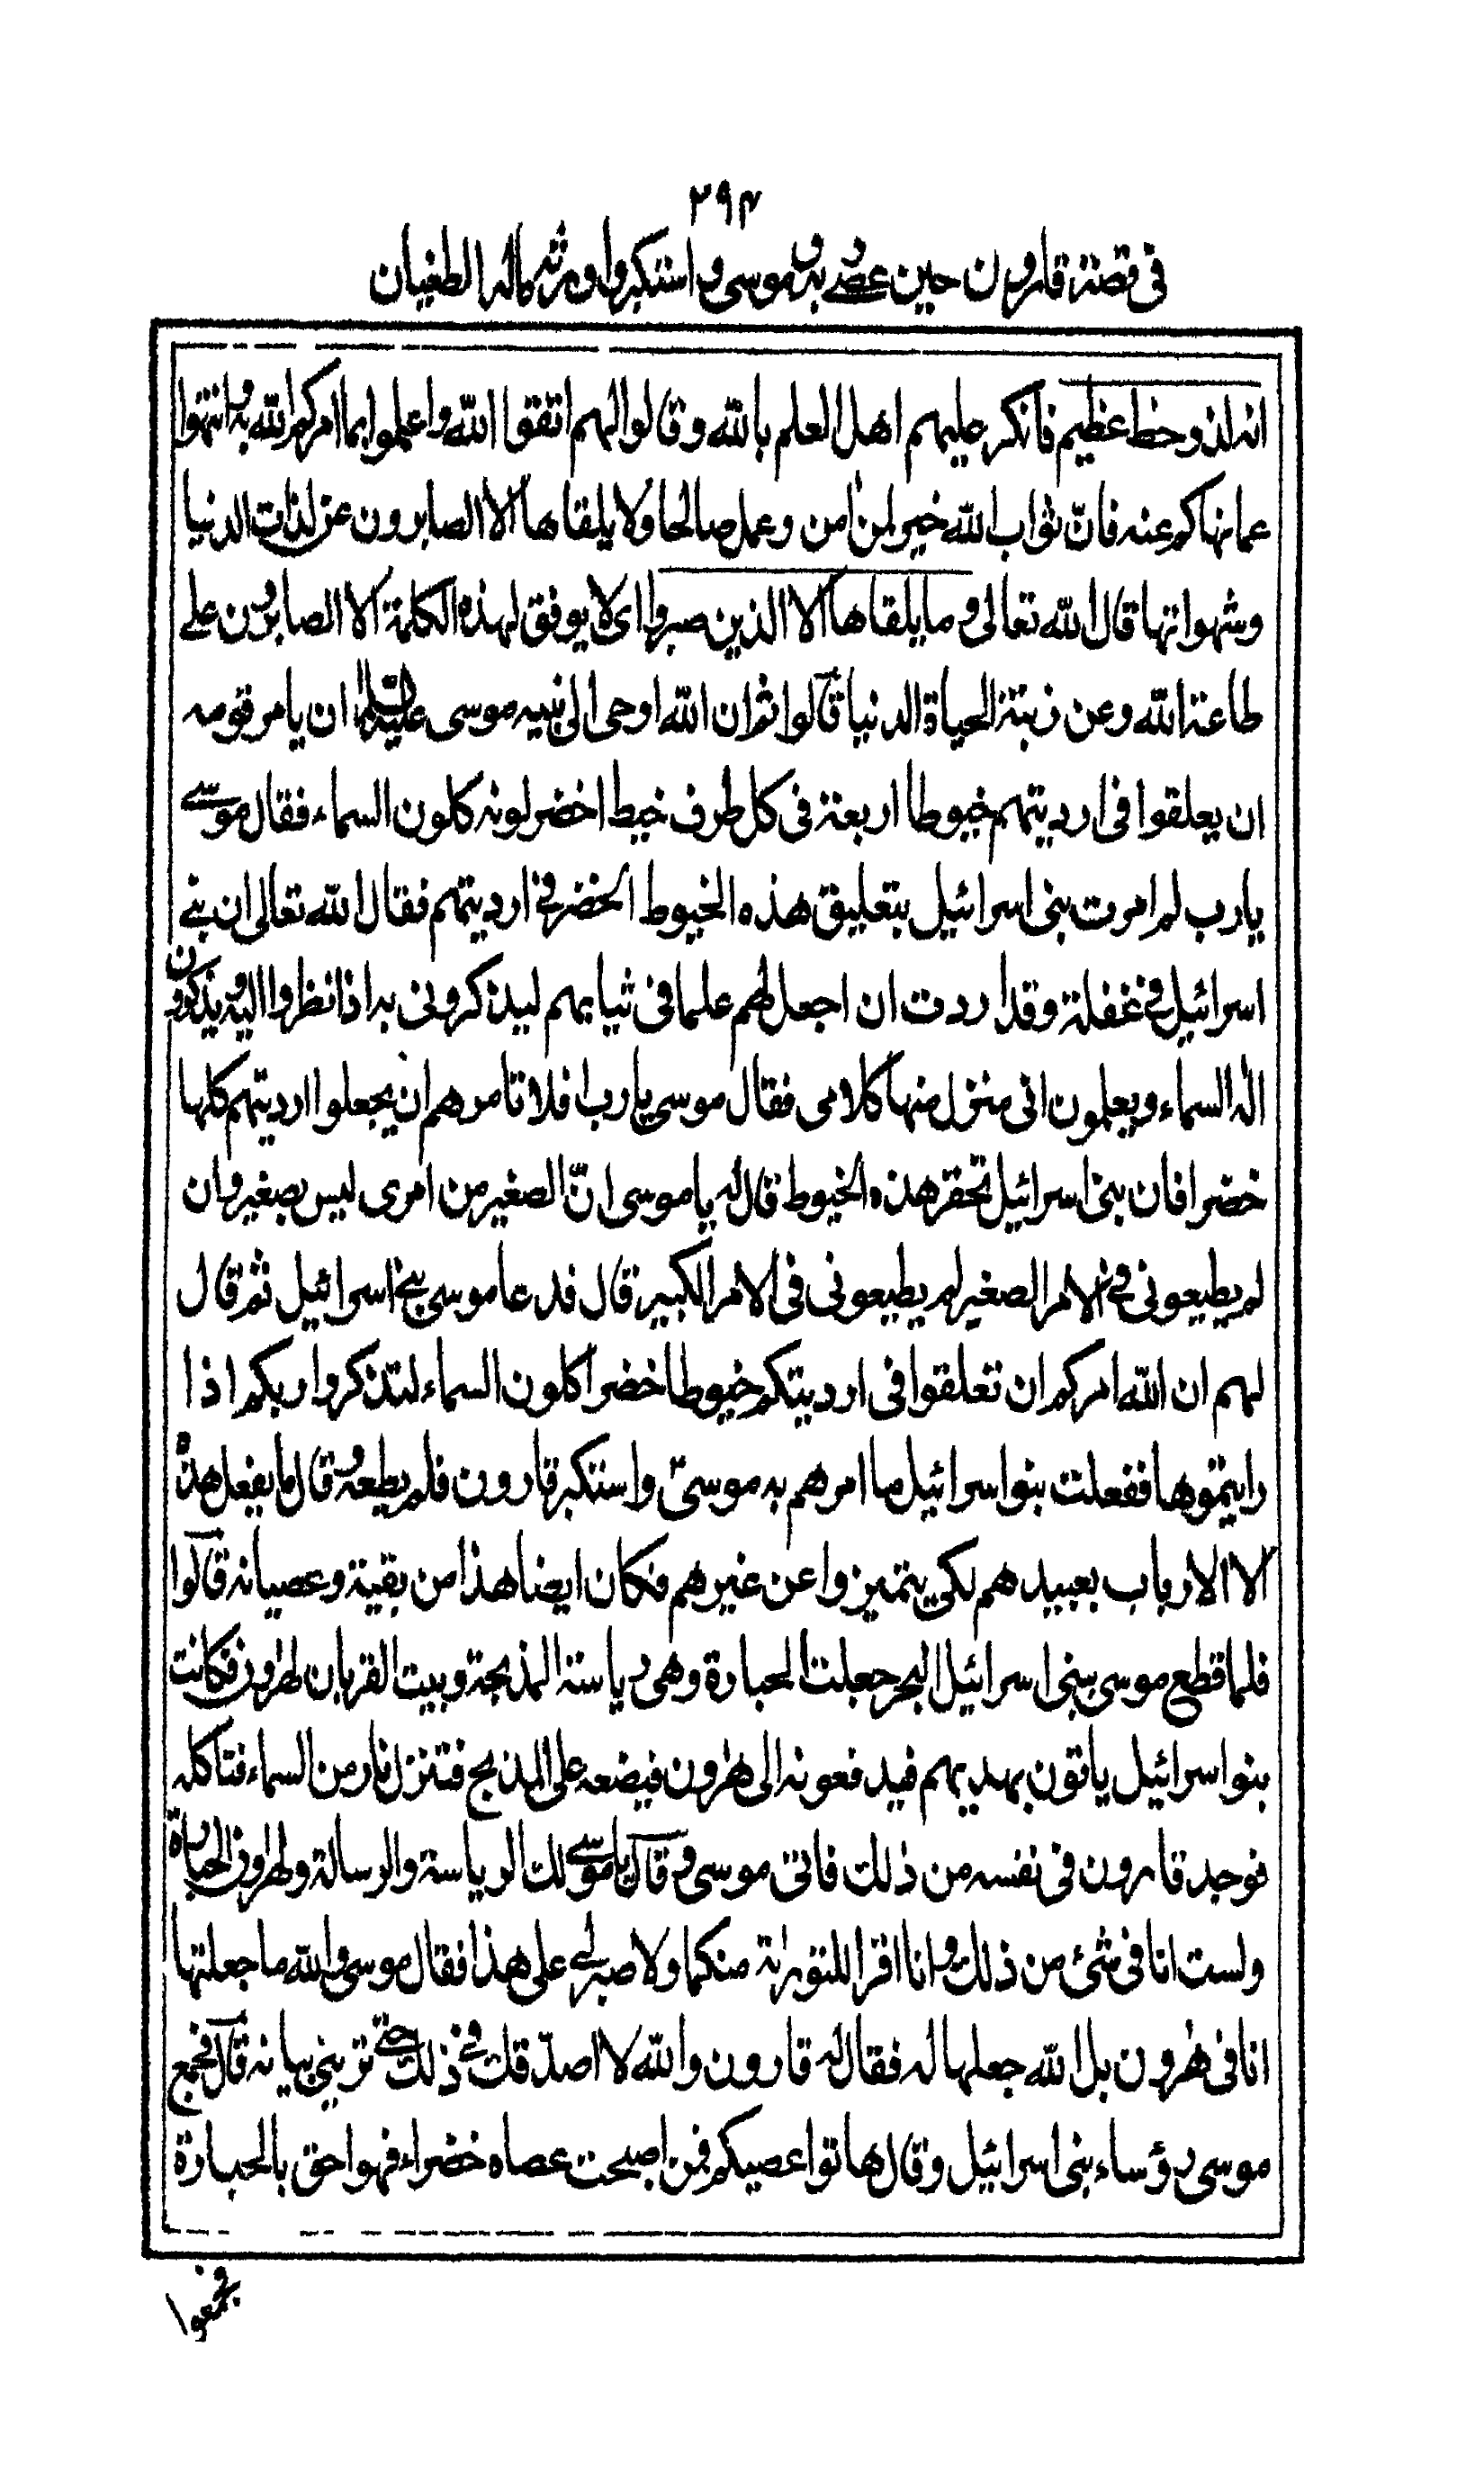 ٢٩٤
في قصة قارون حين عصى ربه وموسى واستكبر واورثه ماله الطغيان
انه لذو حظ عظيم فانكر عليهم اهل العلم بالله وقالوا لهم اتقوا الله واعملوا بما امركم الله به وانتهوا
عما نهاكم عنه فانّ ثواب الله خير لمن اٰمن وعمل صالحا ولا يلقاها الا الصابرون عن لذات الدنيا
وشهواتها قال الله تعالى وما يلقاها الا الذين صبروا اى لا يوفق لهذه الكلمة الا الصابرون على
طاعة الله وعن زينة الحياة الدنيا قالوا ثم ان الله اوحى الى نبيه موسى عليه السلام ان يامر قومه
ان يعلقوا فى ارديتهم خيوطا اربعة فى كل طرف خيط اخضر لونه كلون السماء فقال موسى
يارب لم امرت بنى اسرائيل بتعليق هذه الخيوط الخضر فى ارديتهم فقال الله تعالى ان بنى
اسرائيل فى غفلة وقد اردت ان اجعل لهم علما فى ثيابهم ليذكرونى به اذا نظروا اليه ويذكرون
اله السماء ويعلمون انى منزل منها كلامى فقال موسى يارب افلا تامرهم ان يجعلوا ارديتهم كلها
خضرا فان بنى اسرائيل تحقر هذه الخيوط قال له يا موسى انّ الصغير من امرى ليس بصغير وان
لم يطيعونى فى الامر الصغير لم يطيعونى فى الامر الكبير قال فدعا موسى بنى اسرائيل ثم قال
لهم ان الله امركم ان تعلقوا فى ارديتكم خيوطا خضرا كلون السماء لتذكروا ربكم اذا
رايتموها ففعلت بنوا سرائيل ما امرهم به موسى واستكبر قارون فلم يطعه وقال ما يفعل هذه
الا الارباب بعبيدهم لكى يتميزوا عن غيرهم فكان ايضا هذا من بقية وعصيانه قالوا
فلما قطع موسى ببنى اسرائيل البحر جعلت الحبارة وهى رياسة المذبحة وبيت القربان لهرون فكانت
بنوا سرائيل ياتون بهديهم فيدفعونه الى هٰرون فيضعه على المذبح فتنزل نار من السماء فتاكله
فوجد قارون فى نفسه من ذلك فاتى موسى وقال يا موسى لك الرياسة والرسالة ولهرون الحبارة
ولست انا فى شئ من ذلك وانا اقرا للتورٰية منكما ولا صبر لى على هذا فقال موسى والله ما جعلتها
انا فى هٰرون بل الله جعلها له فقال له قارون والله لا اصدّقك فى ذلك حتى ترينى بيانه قال فجمع
موسى رؤساء بنى اسرائيل وقال هاتوا عصيكم فمن اصبحت عصاه خضراء فهوا حق بالحبارة
فجمعوا